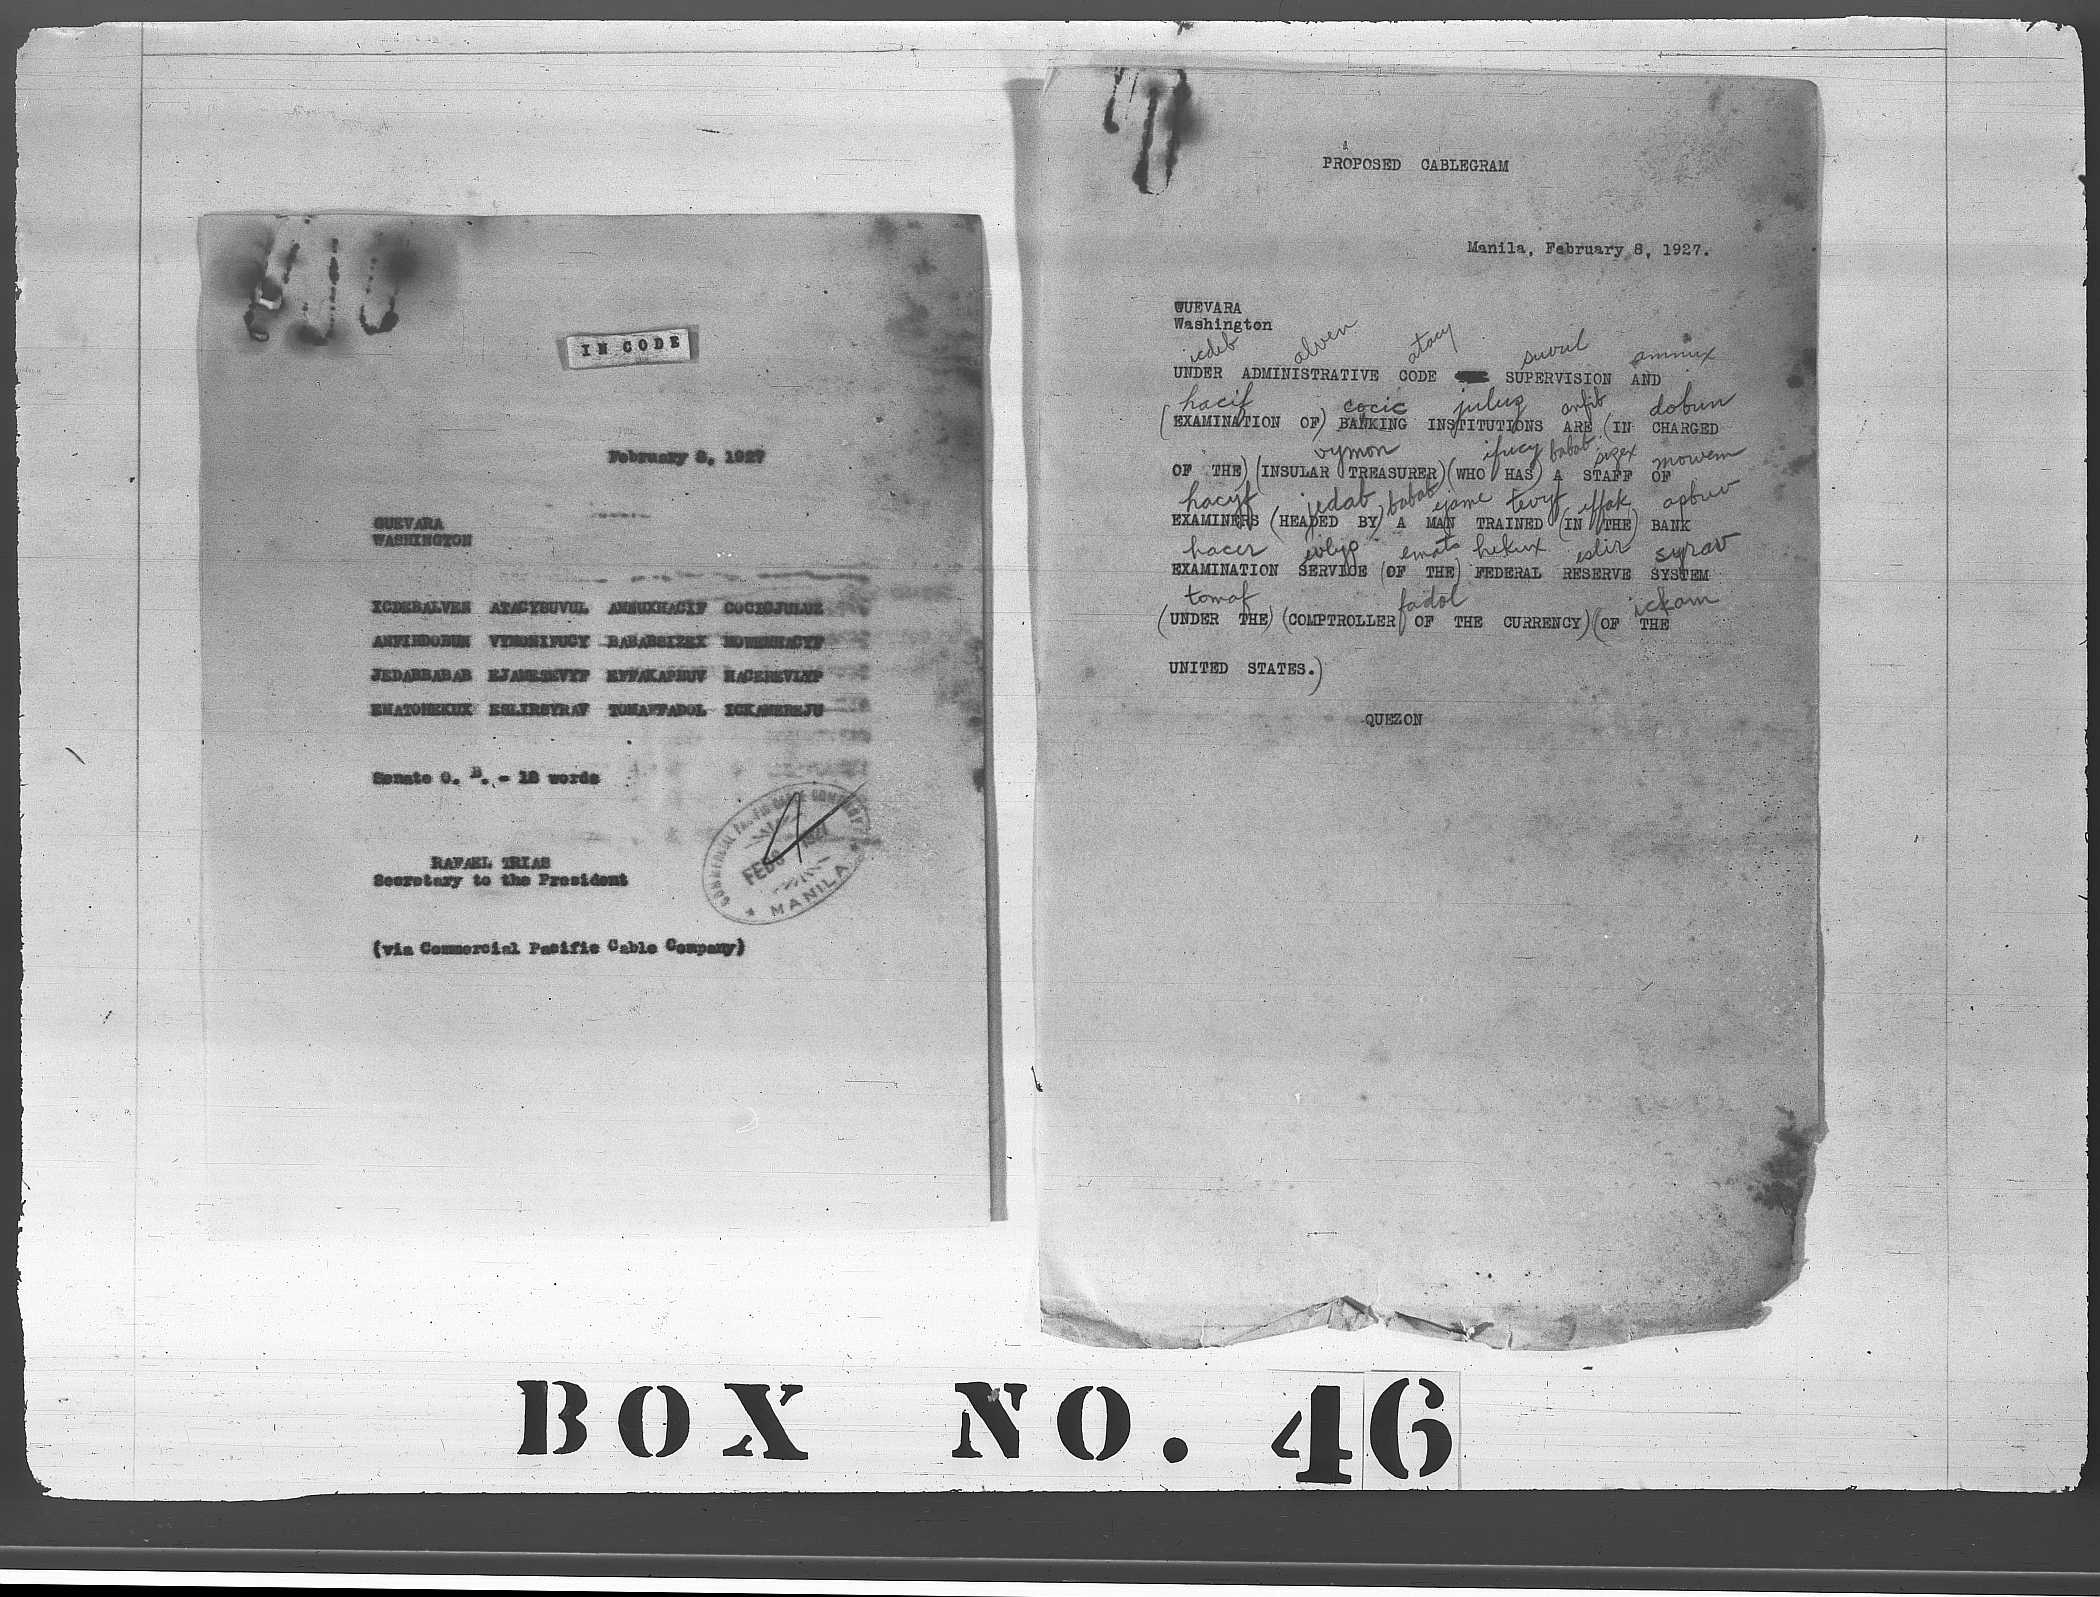 IN CODE
February 8, 1927
GUEVARA
WASHINGTON
ICDEBALVEN ATACYSUVUL AMNUXHACIF COCICJULUZ
ANFIBDOBUN VYMONIFUCY BABABSIZEX MOWEMHACYF
JEDABBABAB EJAMETEVYF EFFAKAPBUV HACEREVLYP
EMATOHEKUX ESLIRSYRAV TOMAFFADOL ICKAMEREJU
Senate O. B. - 18 words
COMMERCIAL PACIFIC CABLE COMPANY
FEB 8 1927
MANILA
RAFAEL TRIAS
Secretary to the President
(via Commercial Pacific Cable Company)
PROPOSED CABLEGRAM
Manila, February 8, 1927.
GUEVARA
Washington
icdeb alven atacy suvul amnux
UNDER ADMINISTRATIVE CODE SUPERVISION AND
hacif cocic juluz anfib dobun
(EXAMINATION OF) BANKING INSTITUTIONS ARE (IN CHARGED
vymon ifucy babab sizex mowem
OF THE) (INSULAR TREASURER) (WHO HAS) A STAFF OF
hacyf jedab babab ejame tevyf effak apbuv
EXAMINERS (HEADED BY) A MAN TRAINED (IN THE) BANK
hacer evlyp emato hekux eslir syrav
EXAMINATION SERVICE (OF THE) FEDERAL RESERVE SYSTEM
tomaf fadol ickam
(UNDER THE) (COMPTROLLER OF THE CURRENCY) (OF THE
UNITED STATES.)
QUEZON
BOX NO. 46